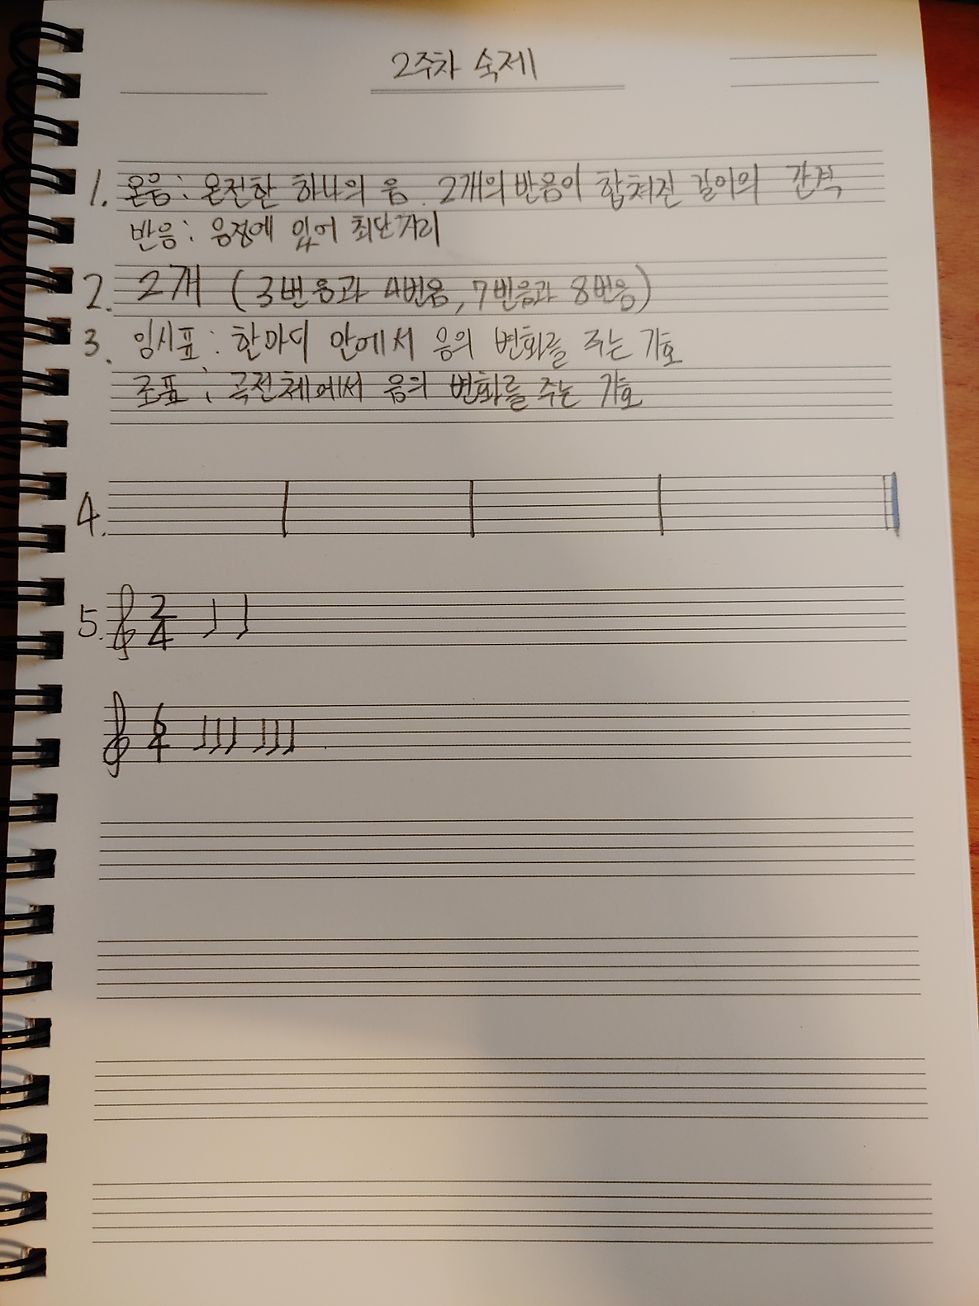 2주차 숙제
1. 온음 : 온전한 하나의 음. 2개의 반음이 합쳐진 길이의 간격
반음 : 음정에 있어 최단거리
2. 2개 (3번음과 4번음, 7번음과 8번음)
3. 임시표 : 한마디 안에서 음의 변화를 주는 기호
조표 : 곡전체에서 음의 변화를 주는 기호
4.
5. 2/4
6/4